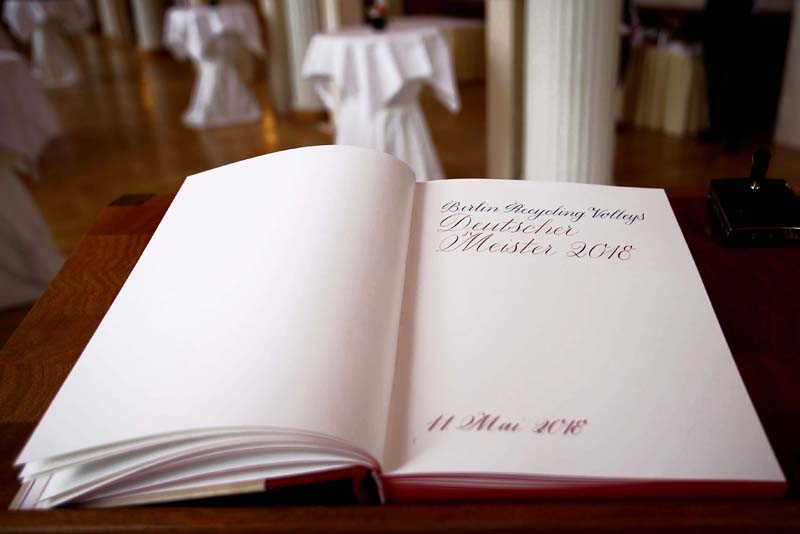 Berlin Recycling Volleys
Deutscher
Meister 2018
11 Mai 2018